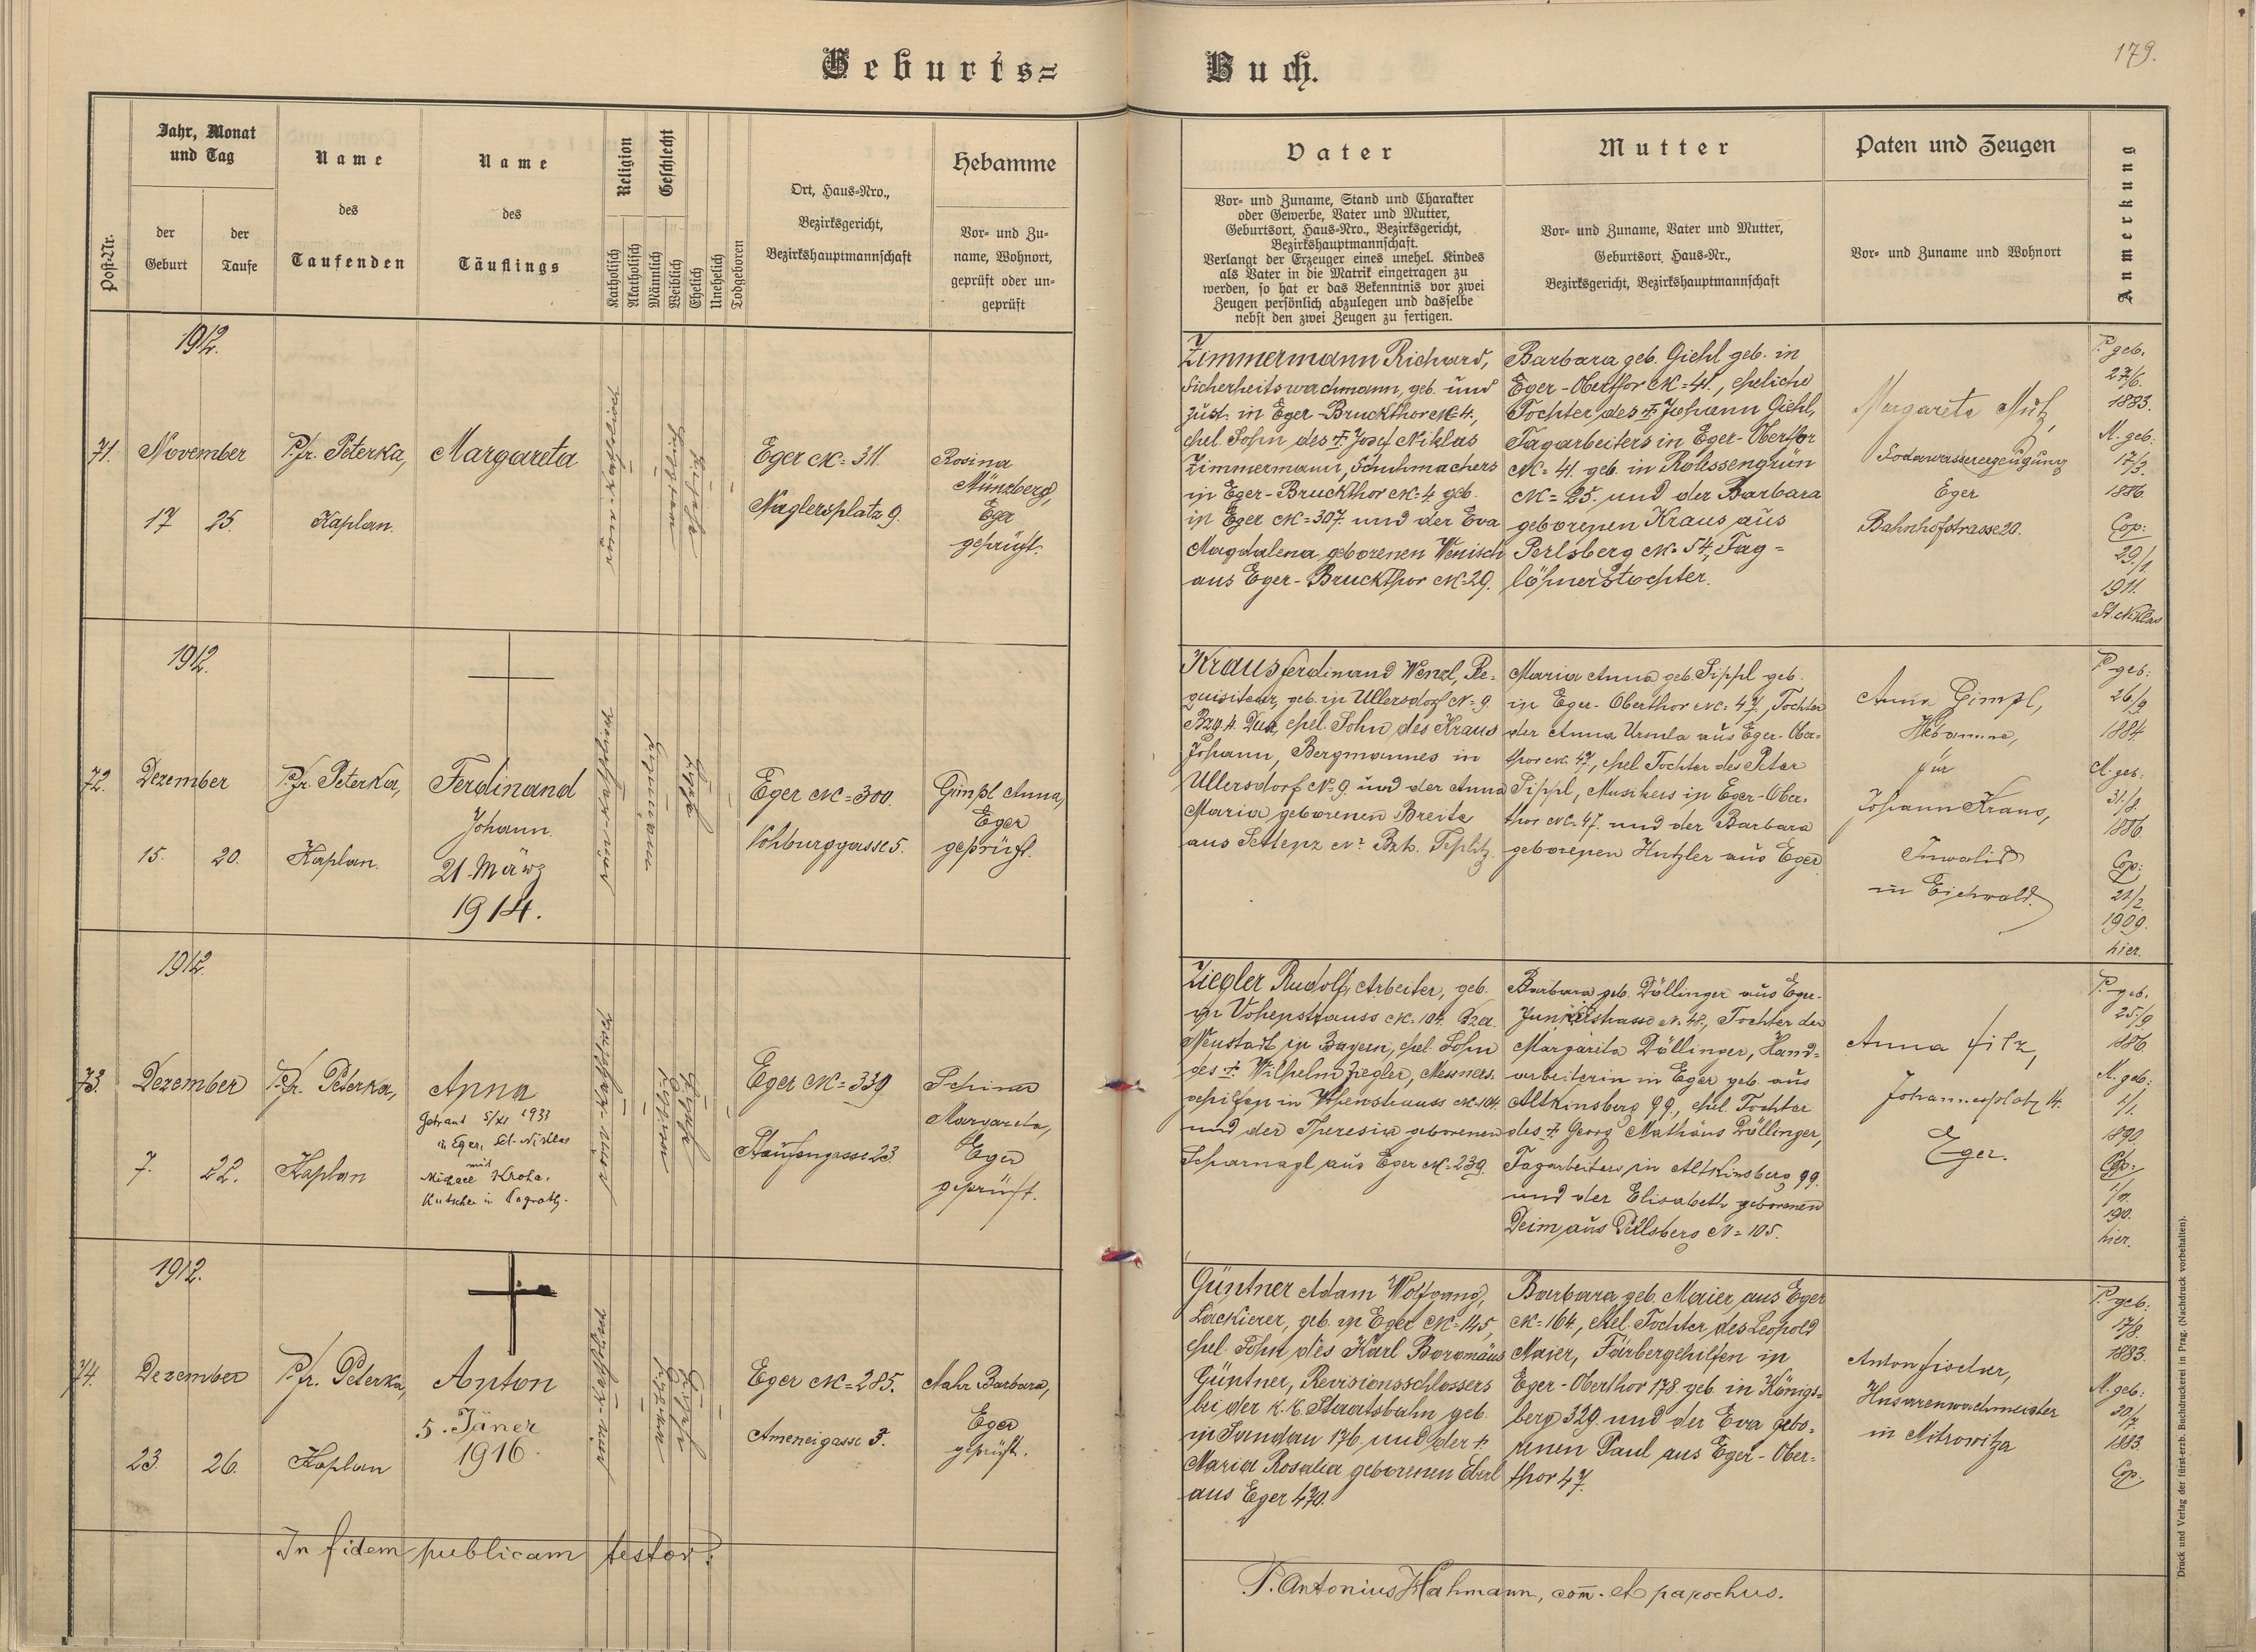 Geburts=
Buch.
179.
Post-Nr.
Jahr, Monat
und Tag
der
Geburt
der
Taufe
Name
des
Taufenden
Name
des
Täuflings
Religion
Katholisch
Akatholisch
Geschlecht
Männlich
Weiblich
Ehelich
Unehelich
Todgeboren
Ort, Haus-Nro.,
Bezirksgericht,
Bezirkshauptmannschaft
Hebamme
Vor- und Zu-
name, Wohnort,
geprüft oder un-
geprüft
Vater
Vor- und Zuname, Stand und Charakter
oder Gewerbe, Vater und Mutter,
Geburtsort, Haus-Nro., Bezirksgericht,
Bezirkshauptmannschaft.
Verlangt der Erzeuger eines unehel. Kindes
als Vater in die Matrik eingetragen zu
werden, so hat er das Bekenntnis vor zwei
Zeugen persönlich abzulegen und dasselbe
nebst den zwei Zeugen zu fertigen.
Mutter
Vor- und Zuname, Vater und Mutter,
Geburtsort, Haus-Nr.,
Bezirksgericht, Bezirkshauptmannschaft
Paten und Zeugen
Vor- und Zuname und Wohnort
Anmerkung
1912.
71.
November
17
25.
P. Fr. Peterka,
Kaplan.
Margareta
römisch-katholisch
Eger N= 311.
Naglersplatz 9.
Rosina
Münzberg,
Eger
geprüft.
Zimmermann Richard,
Sicherheitswachmann, geb. und
zust. in Eger-Bruckthor N= 4.,
ehel. Sohn des † Josef Niklas
Zimmermann, Schuhmachers
in Eger-Bruckthor N= 4 geb.
in Eger N= 307. und der Eva
Magdalena geborenen Wenisch
aus Eger-Bruckthor N= 29.
Barbara geb. Giehl geb. in
Eger-Oberthor N= 41., eheliche
Tochter des † Johann Giehl,
Tagarbeiters in Eger-Oberthor
N= 41 geb. in Rolessengrün
N= 25. und der Barbara
geborenen Kraus aus
Perlsberg N= 54, Tag=
löhnerstochter.
Margareta Mütz,
Sodawassererzeugung
Eger
Bahnhofstrasse 20.
P. geb.
27/6.
1883.
M. geb:
17/3.
1886.
Cop:
29./1.
1911.
St. Niklas
1912.
72.
Dezember
15.
20.
P. Fr. Peterka,
Kaplan.
Ferdinand
Johann.
21. März
1914.
römisch-katholisch
Eger N= 300.
Vohburggasse 5.
Gimpl Anna,
Eger
geprüft.
Kraus Ferdinand Wenzl, Re=
quisiteur, geb. in Ullersdorf N= 9.
Bzg. h. Dux, ehel. Sohn des Kraus
Johann, Bergmannes in
Ullersdorf N= 9. und der Anna
Maria geborenen Breite
aus Settenz N= Bzh. Teplitz.
Maria Anna geb. Sippl geb.
in Eger-Oberthor N= 47, Tochter
der Anna Ursula aus Eger-Ober=
thor N= 47, ehel. Tochter des Peter
Sippl, Musikers in Eger-Ober=
thor N= 47. und der Barbara
geborenen Hutzler aus Eger.
Anna Gimpl,
Hebamme,
für
Johann Kraus,
Invalid
in Eichwald.
P. geb:
26/9.
1884.
M. geb:
31./8.
1886.
Cop:
21/2.
1909.
hier.
1912.
73.
Dezember
7.
22.
P. Fr. Peterka,
Kaplan
Anna
Getraut 5/XI 1933
in Eger, St. Niklas
mit
Michael Kroha,
Kutscher in Pograth.
römisch-katholisch
Eger N= 339
Staufengasse 23.
Schima
Margareta,
Eger
geprüft.
Ziegler Rudolf, Arbeiter, geb.
in Vohenstrauss N= 104. Bza.
Neustadt in Bayern, ehel. Sohn
des † Wilhelm Ziegler, Messners=
gehilfen in Vohenstrauss N= 104.
und der Theresia geborenen
Scharnagl aus Eger N= 239.
Barbara geb. Döllinger aus Eger-
Junkerstrasse N= 48., Tochter der
Margarita Döllinger, Hand=
arbeiterin in Eger geb. aus
Altkinsberg 99., ehel. Tochter
des † Georg Mathäus Döllinger,
Tagarbeiters in Altkinsberg 99.
und der Elisabeth geborenen
Deim aus N= 105.
Anna Filz,
Johannesplatz 14.
Eger.
P. geb.
25./9.
1886.
M. geb:
1./1.
1890.
Cop:
190.
hier.
1912.
74.
Dezember
23.
26.
P. Fr. Peterka,
Kaplan
Anton
5. Jäner
1916.
römisch-katholisch
Eger N= 285.
Ameneigasse 3.
Nahr Barbara,
Eger
geprüft.
Güntner Adam Wolfgang,
Lackierer, geb. in Eger N= 145,
ehel. Sohn des Karl Boromäus
Güntner, Revisionsschlossers
bei der k. k. Staatsbahn geb.
in Sandau 176. und der †
Maria Rosalia geborenen Eberl
aus Eger 470.
Barbara geb. Maier aus Eger
N= 164., ehel. Tochter des Leopold
Maier, Färbergehilfen in
Eger-Oberthor 178. geb. in Königs=
berg 329. und der Eva gebo=
renen Paul aus Eger-Ober=
thor 47.
Anton Fischer,
Husarenwachmeister
in Mitrowitza
P. geb:
17/8.
1883.
M. geb:
20/7.
1883.
Cop.
In fidem publicam testor:
P. Antonius Hahmann, com. et parochus.
Druck und Verlag der fürst-erzb. Buchdruckerei in Prag. (Nachdruck vorbehalten).